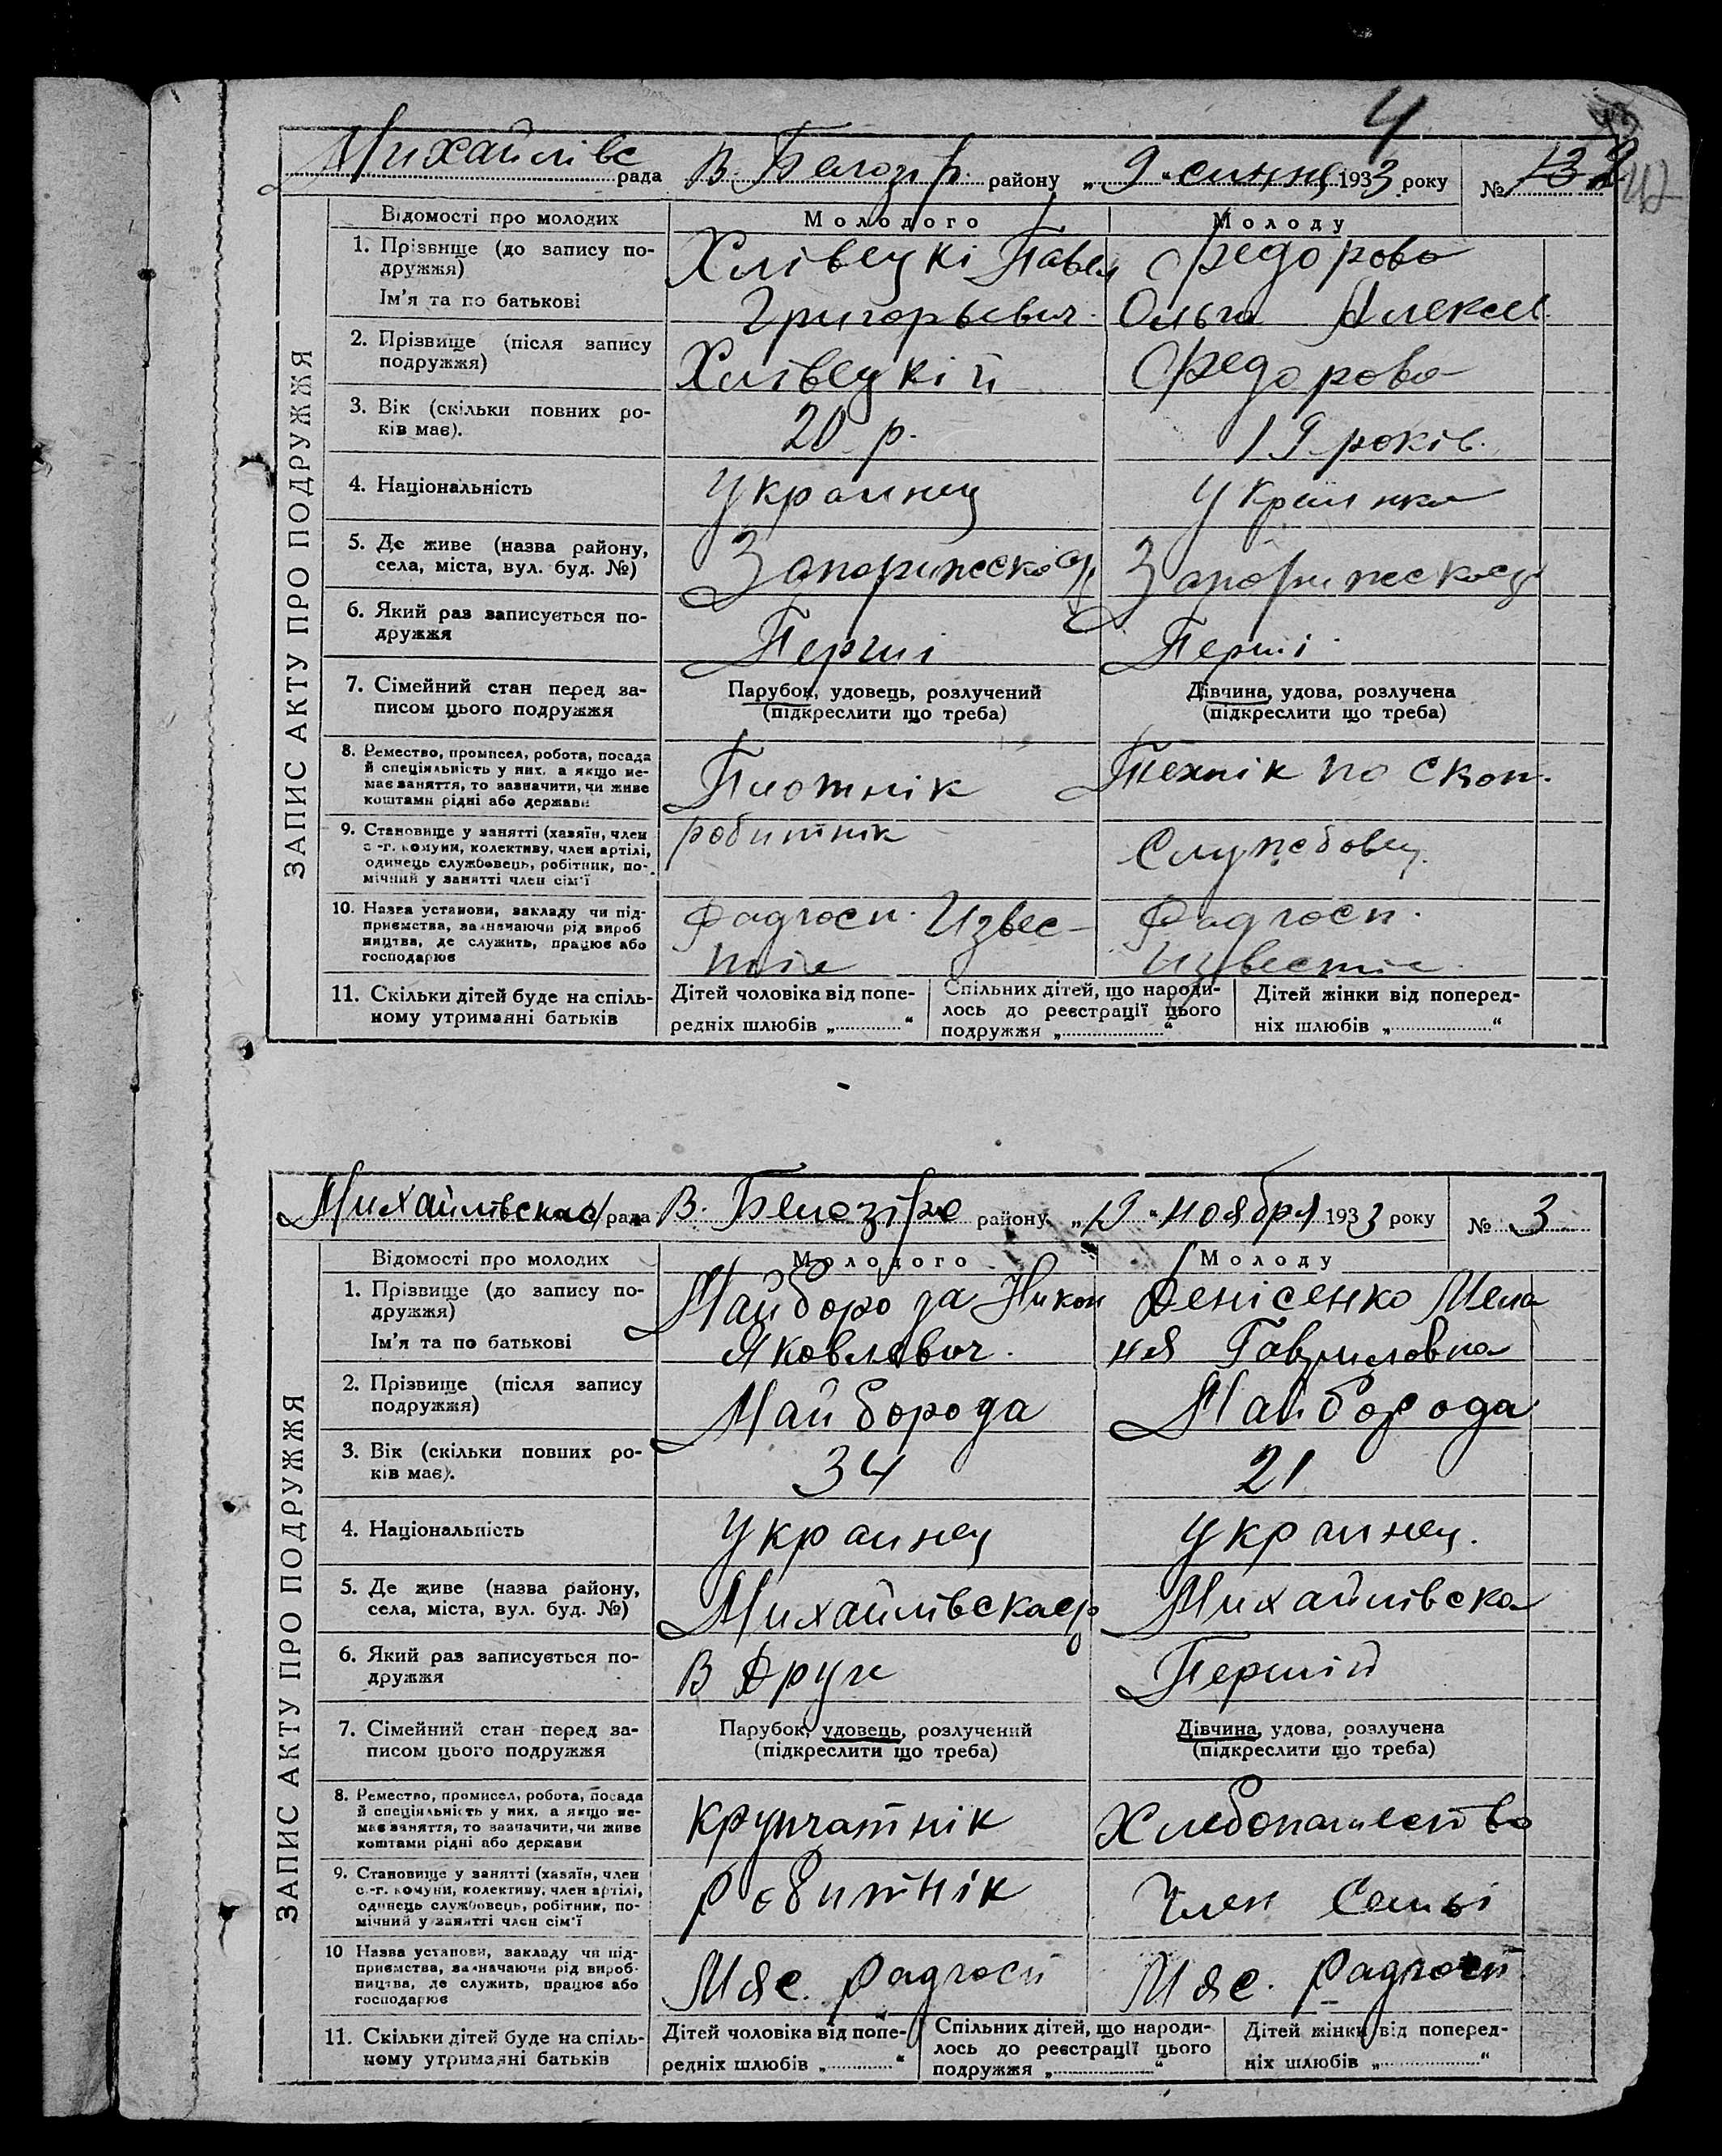 4
Михайлівс рада В. Белозір. району „ 9 “ 1933 року №
Відомості про молодих Молодого Молоду
1. Прізвище (до запису по-
дружжя)
Хлівецкі Павел Федорова
Ім'я та по батькові
Григорьевич. Ольга Алексе.
2. Прізвище (після запису
подружжя)
Хлівецкій Федорова
3. Вік (скільки повних ро-
ків має).
20 р. 19 років.
4. Національність Украинец Українка
5. Де живе (назва району,
села, міста, вул. буд. №)
6. Який раз записується по-
дружжя
Перши Перші
7. Сімейний стан перед за-
писом цього подружжя
Парубок, удовець, розлучений
(підкреслити що треба)
Дівчина, удова, розлучена
(підкреслити що треба)
8. Ремество, промисел, робота, посада
й спеціяльність у них, а якщо не-
має заняття, то зазначити, чи живе
коштами рідні або держави
Плотнік Технік по скот.
9. Становище у занятті (хазяїн, член
с.-г. комуни, колективу, член артілі,
одинець службовець, робітник, по-
мічний у занятті член сім'ї
робитнік Служебовец.
10. Назва установи, закладу чи під-
приємства, зазначаючи рід вироб
ництва, де служить, працює або
господарює
Радгосп. Извес- Радгосп.
тія Известіе
11. Скільки дітей буде на спіль-
ному утриманні батьків
Дітей чоловіка від попе-
редніх шлюбів „ “
Спільних дітей, що народи-
лось до реєстрації цього
подружжя „ “
Дітей жінки від поперед-
ніх шлюбів „ “
ЗАПИС АКТУ ПРО ПОДРУЖЖЯ
Михайлівская рада В. Белозірко району „ 19 “ ноября 1933 року № 3
Відомості про молодих Молодого Молоду
1. Прізвище (до запису по-
дружжя)
Майборода Никон Денісенко Мела
Ім'я та по батькові
Яковлевич. ния Гавриловна
2. Прізвище (після запису
подружжя)
Майборода Майборода
3. Вік (скільки повних ро-
ків має).
34 21
4. Національність Украинец Украинец.
5. Де живе (назва району,
села, міста, вул. буд. №)
Михайлівска Михайлівска
6. Який раз записується по-
дружжя
В Други Першій
7. Сімейний стан перед за-
писом цього подружжя
Парубок, удовець, розлучений
(підкреслити що треба)
Дівчина, удова, розлучена
(підкреслити що треба)
8. Ремество, промисел, робота, посада
й спеціяльність у них, а якщо не-
має заняття, то зазначити, чи живе
коштами рідні або держави
Крупчатнік Хлебопашество
9. Становище у занятті (хазяїн, член
с.-г. комуни, колективу, член артілі,
одинець службовець, робітник, по-
мічний у занятті член сім'ї
Робитнік Член Семьі
10 Назва установи, закладу чи під-
приємства, зазначаючи рід вироб-
ництва, де служить, працює або
господарює
Мяс. Радгосп Мяс. Радгосп.
11. Скільки дітей буде на спіль-
ному утриманні батьків
Дітей чоловіка від попе-
редніх шлюбів „ “
Спільних дітей, що народи-
лось до реєстрації цього
подружжя „ “
Дітей жінки від поперед-
ніх шлюбів „ “
ЗАПИС АКТУ ПРО ПОДРУЖЖЯ